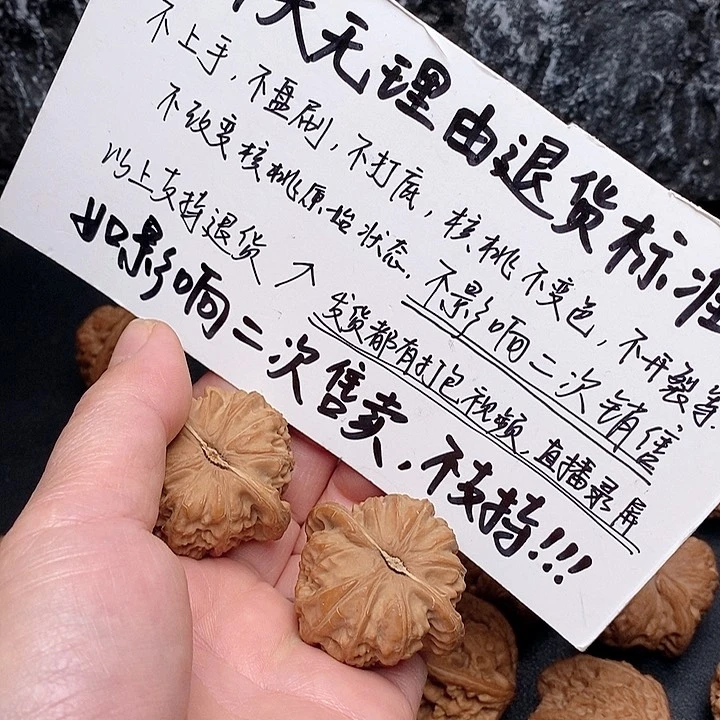 天无理由退货标准
不上手,不盘刷,不打底,核桃不变色,不开裂等
不改变核桃原始状态,不影响二次销售
以上支持退货
发货都有打包视频,直播录屏
如影响二次售卖,不支持!!!